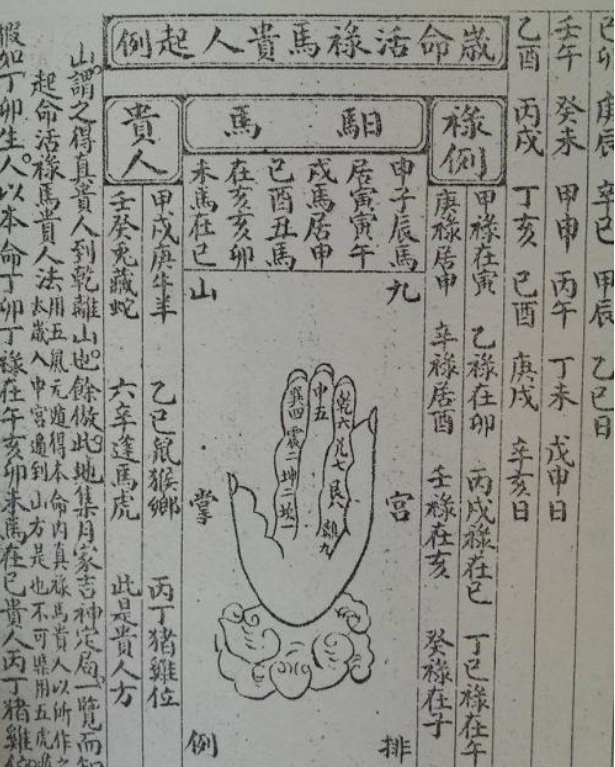 己卯 庚辰 辛巳 甲辰 乙巳日
壬午 癸未 甲申 丙午 丁未 戊申日
乙酉 丙戌 丁亥 己酉 庚戌 辛亥日
歲命活祿馬貴人起例
祿例
甲祿在寅 乙祿在卯 丙戌祿在巳 丁巳祿在午
庚祿居申 辛祿居酉 壬祿在亥 癸祿在子
馹馬
申子辰馬
居寅寅午
戌馬居申
巳酉丑馬
在亥亥卯
未馬在巳
九宮排
山掌例
乾六 兌七 艮 離九
中五
巽四 震二 坤二 坎一
貴人
甲戌庚牛羊 乙巳鼠猴鄉 丙丁猪雞位
壬癸兎藏蛇 六辛逢馬虎 此是貴人方
山謂之得真貴人到乾離山也。餘倣此。地集月家吉神定局一覽而知
起命活祿馬貴人法
用五虎元遁得本命內真祿馬貴人以所作之
太歲入中宮遁到山方是也不可槩用五虎遁
假如丁卯生人。以本命丁卯丁祿在午亥卯未馬在巳貴人丙丁猪雞位